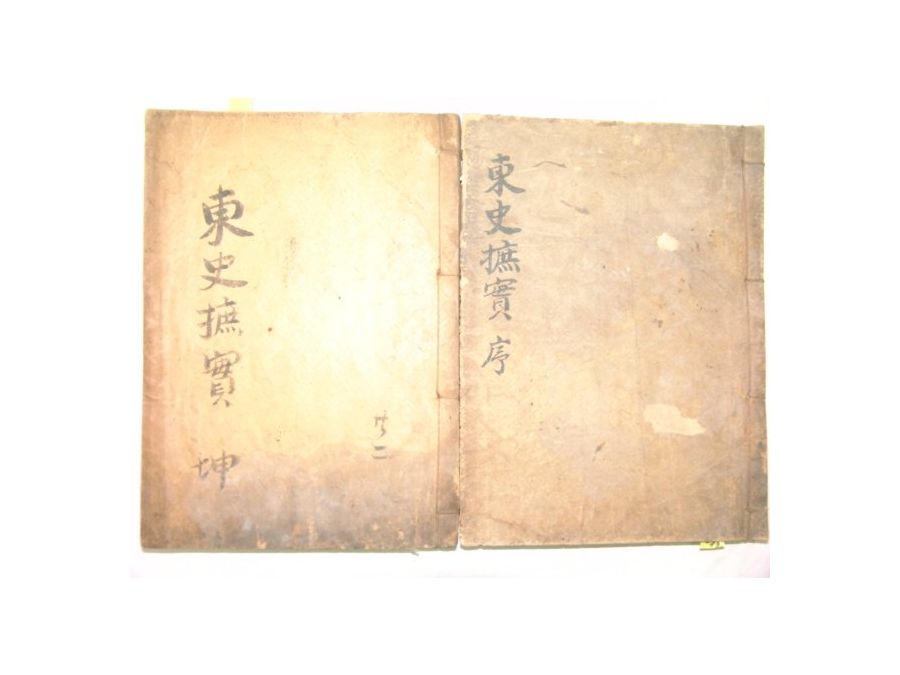 東史摭實 序
東史摭實 坤
共二